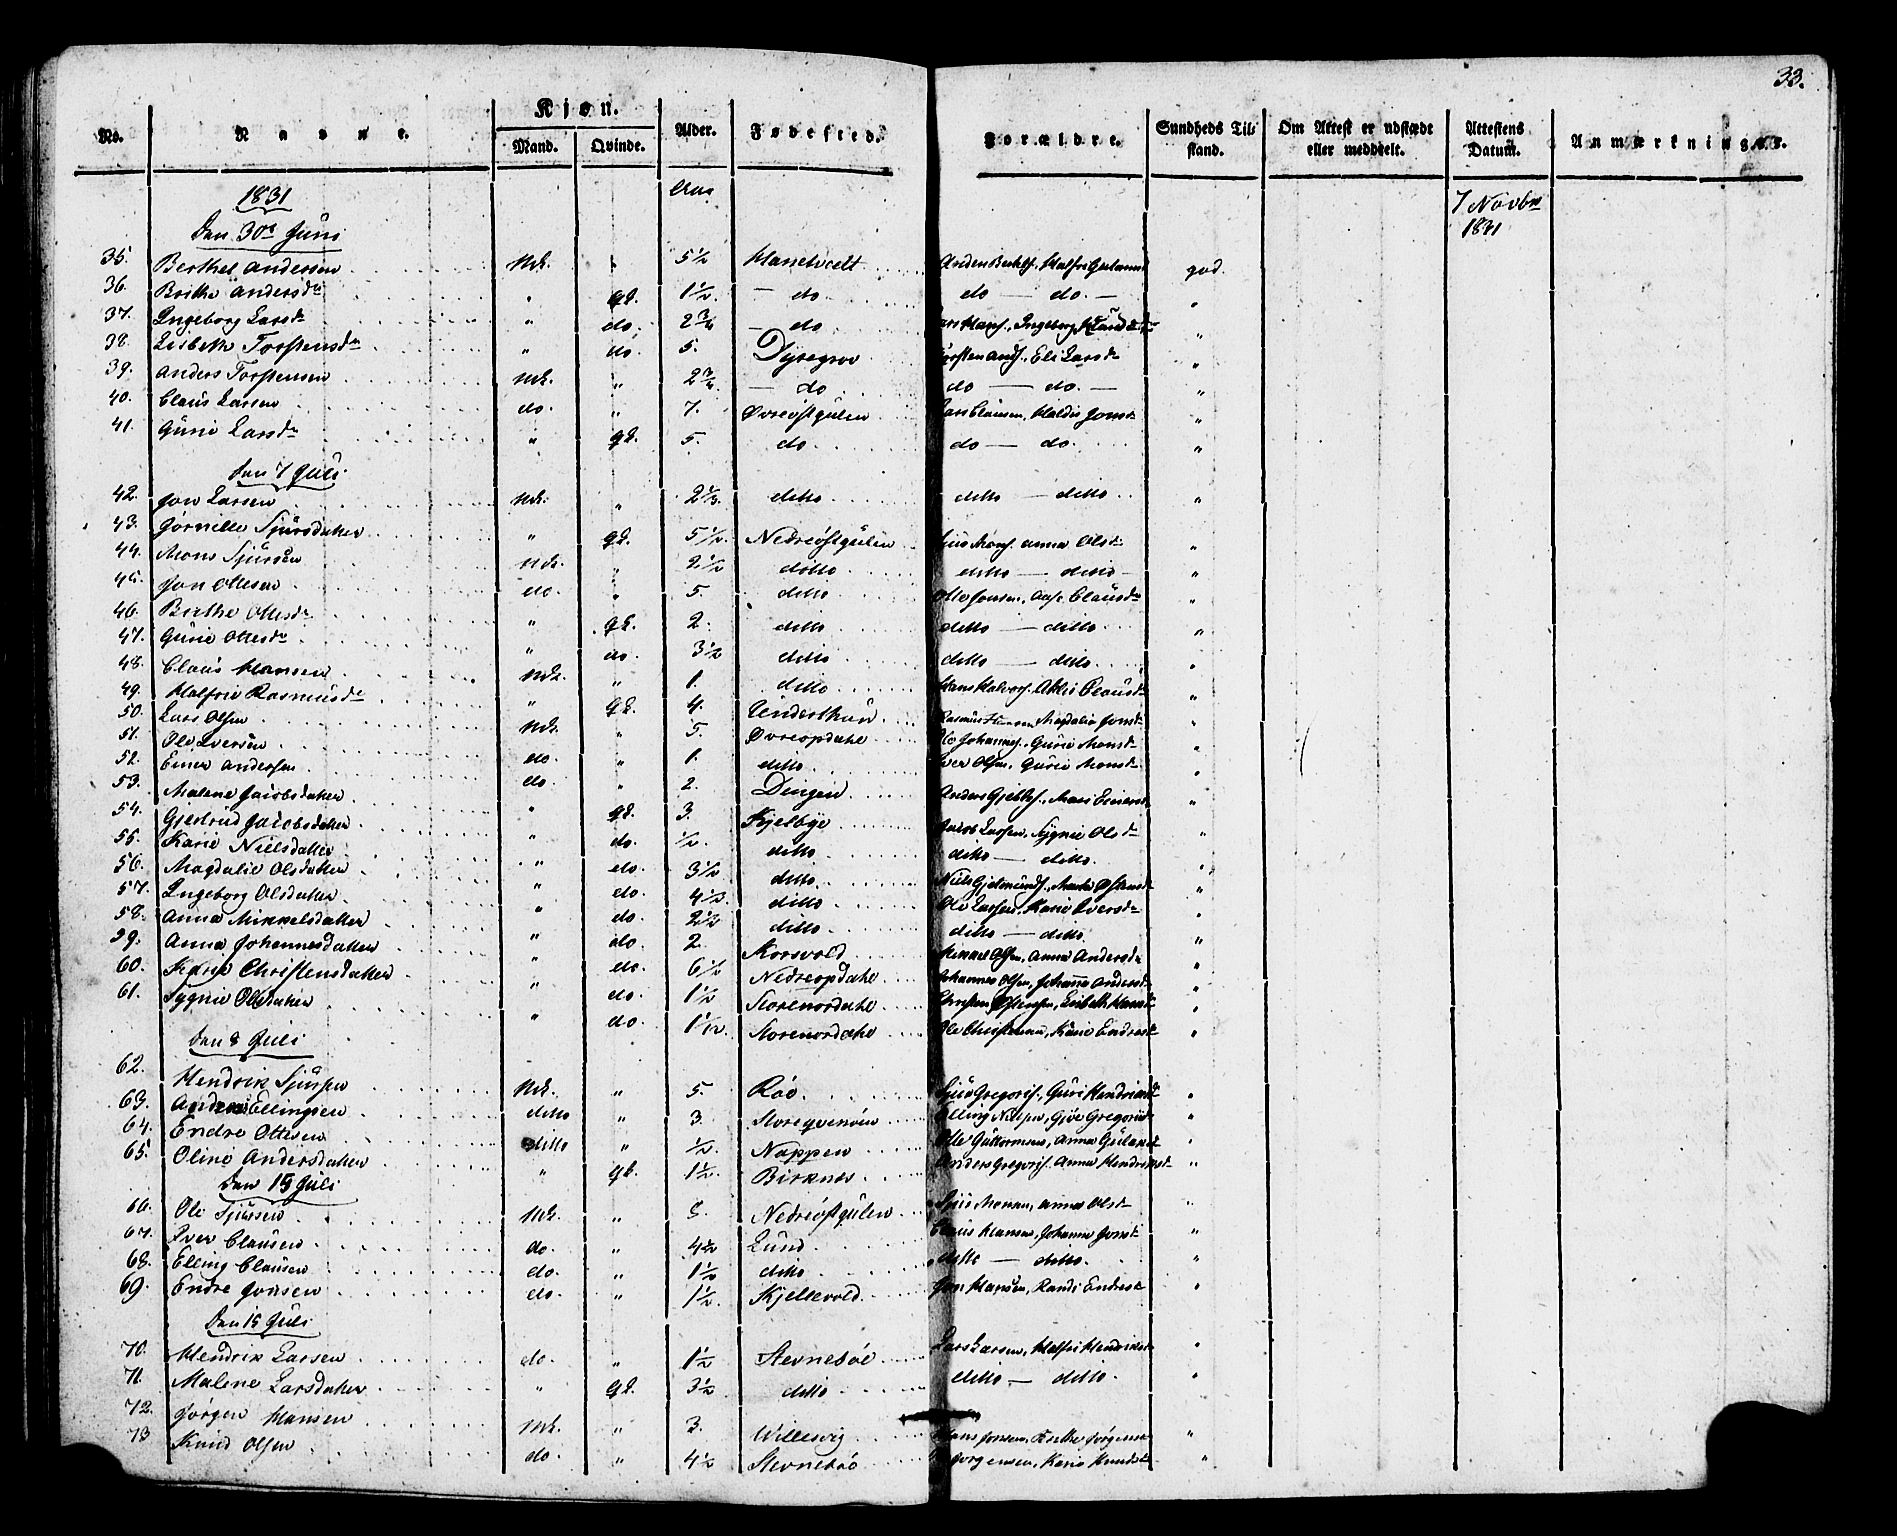 33.
No. Navne. Kjøn. Mand. Qvinde. Alder. Fødested. Forældre. Sundheds Tilstand. Om Attest er udstædt eller meddeelt. Attestens Datum. Anmærkninger.
1831 Aar 7 Novbr 1831
Den 30te Juni
35. Berthel Andersen Mk. " 5½ god.
36. Brithe Andersdr " qk. 1½ — do do — do. — "
37. Ingeborg Larsdr " do. 2¾ — do "
38. Lisbeth Torstensdr " do. 5. Dyregrov Torsten Ands., Eli Larsdr "
39. Anders Torstensen Mk. " 2¾ — do do — do. — "
40. Claus Larsen do. " 7. Øvreøstgulen Lars Clausen, Maldis Jonsdr "
41. Gurie Larsdr " qk. 5. do. do — do. "
Den 7 Juli
42. Jon Larsen Mk. " 2⅓. ditto ditto — ditto "
43. Jørnelle Sjursdatter " qk. 5½. Nedreøstgulen Sjur Mons. Anna Olsdr "
44. Mons Sjursen Mk. " 2½ ditto ditto — ditto — "
45. Jon Ottesen do. " 5. ditto Otto Jonsen, Clausdr "
46. Birthe Ottesdr " qk. 2. ditto ditto — ditto "
47. Gurie Ottesdr " do 3½ ditto ditto — ditto. "
48. Claus Hansen Mk. " 1. ditto Hans Halvors. Clausdr "
49. Malfrie Rasmusdr " qk. 4. Underthun Rasmus Magdalie Jonsdr "
50. Lars Olsen Mk. " 5. Øvreopdahl Ole Johannes., Gurie Monsdr "
51. Ole Iversen do. " 1. ditto Iver Olsen, Gurie Monsdr "
52. Einer Andersen do. " 2. Dingen Anders "
53. Malene Jacobsdatter " qk. 3. Kjelbye Jacob Larsen, Sygnie Olsdr "
54. Gjertrud Jacobsdatter " do. ½. ditto ditto — ditto. "
55. Karie Nielsdatter " do. 3½ ditto Niels Gjelmunds. "
56. Magdalie Olsdatter " do. 4½. ditto Ole Larsen, Karie Iversdr "
57. Ingeborg Olsdatter " do. 2½ ditto ditto — ditto. "
58. Anna Mikkelsdatter " do 2. Korsvold Mikkel Olsen, Anna Andersdr "
59. Anna Johannesdatter " do. 6½ Nedreopdahl Johannes Olsen, Johanna Andersdr "
60. Karie Christensdatter " do. 1½ Storenordahl "
61. Sygnie Olsdatter " do. Storenordahl Ole Christensen, Karie Endresdr "
Den 8 Juli
62. Hendrik Sjursen Mk. " 5. Råe Sjur Gregoris., Guri Hendriksdr "
63. Andreas Ellingsen ditto " 3. Elling Nielsen, Gjøe Gregorisdr "
64. Endre Ottesen ditto " ½. Nappen Otte Guttormsen, Anna "
65. Oline Andersdatter " qk. 1½ Birknes Anders Gregoris. Anna Hendriksdr "
Den 15 Juli
66. Ole Sjursen Mk. " 5. Nedreøstgulen Sjur Monsen, Anna Olsdr "
67. Iver Clausen do. " 4½ Lund Claus Hansen, Johanna Jonsdr "
68. Elling Clausen do. " 1½ ditto ditto — ditto. "
69. Endre Jonsen do. " 1½. Kjellevold Jon Hansen, Randi Endresdr "
Den 15 Juli
70. Hendrik Larsen do. " 1½ Stevnebøe Lars Larsen, Malfri Hendriksdr "
71. Malene Larsdatter " qk. 3½ ditto ditto — ditto. "
72. Jørgen Hansen Mk. " 3. Willesvig Hans Jonsen, "
73 Knud Olsen do. " 4½ Stevnebøe Jørgensen, Karie Knudsdr "